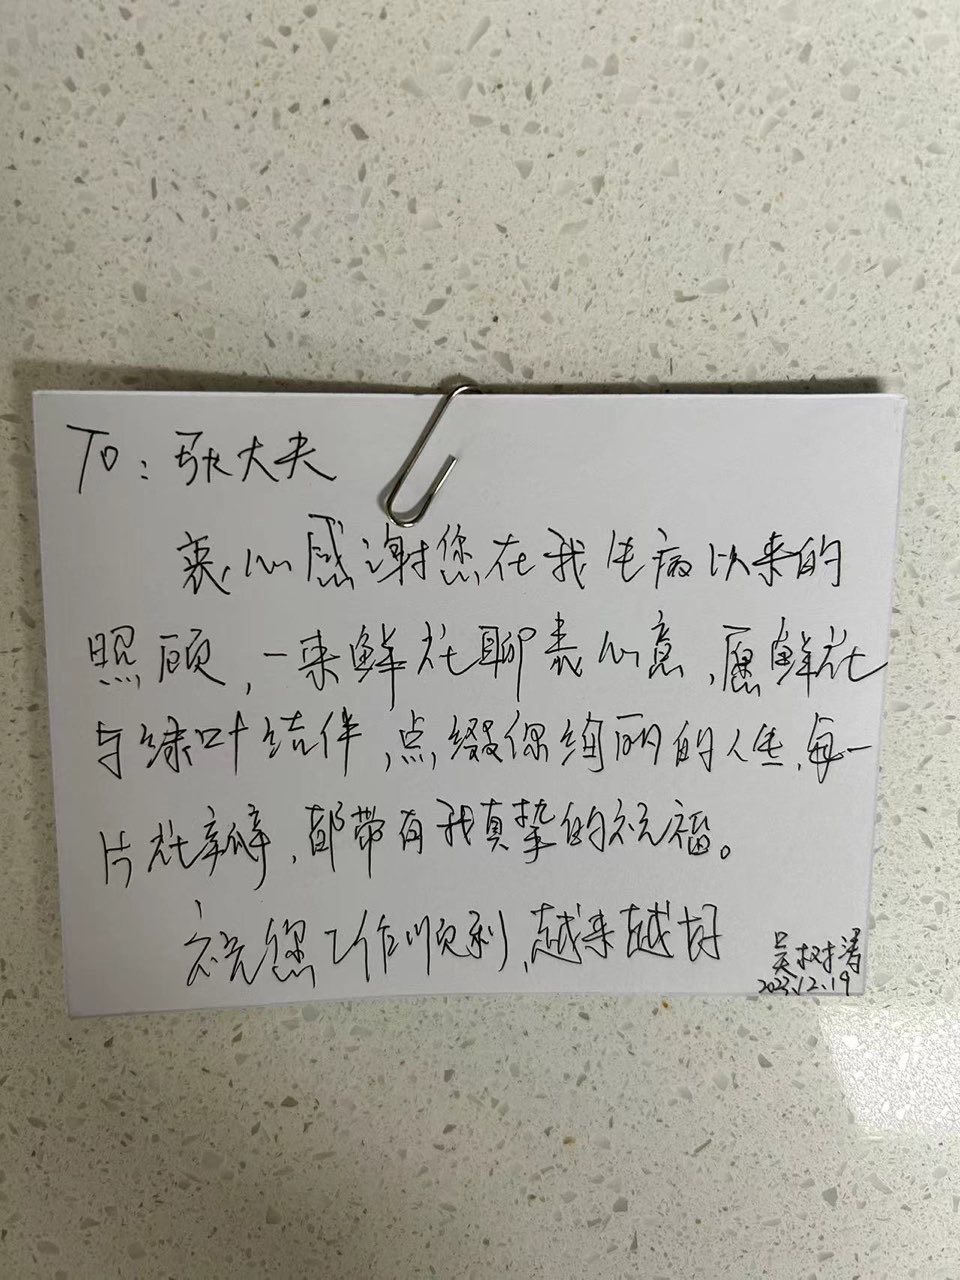 TO：张大夫
衷心感谢您在我生病以来的
照顾，一束鲜花聊表心意，愿鲜花
与绿叶结伴，点缀你绚丽的人生，每一
片花瓣，都带有我真挚的祝福。
祝您工作顺利，越来越好
吴树清
2023.12.19